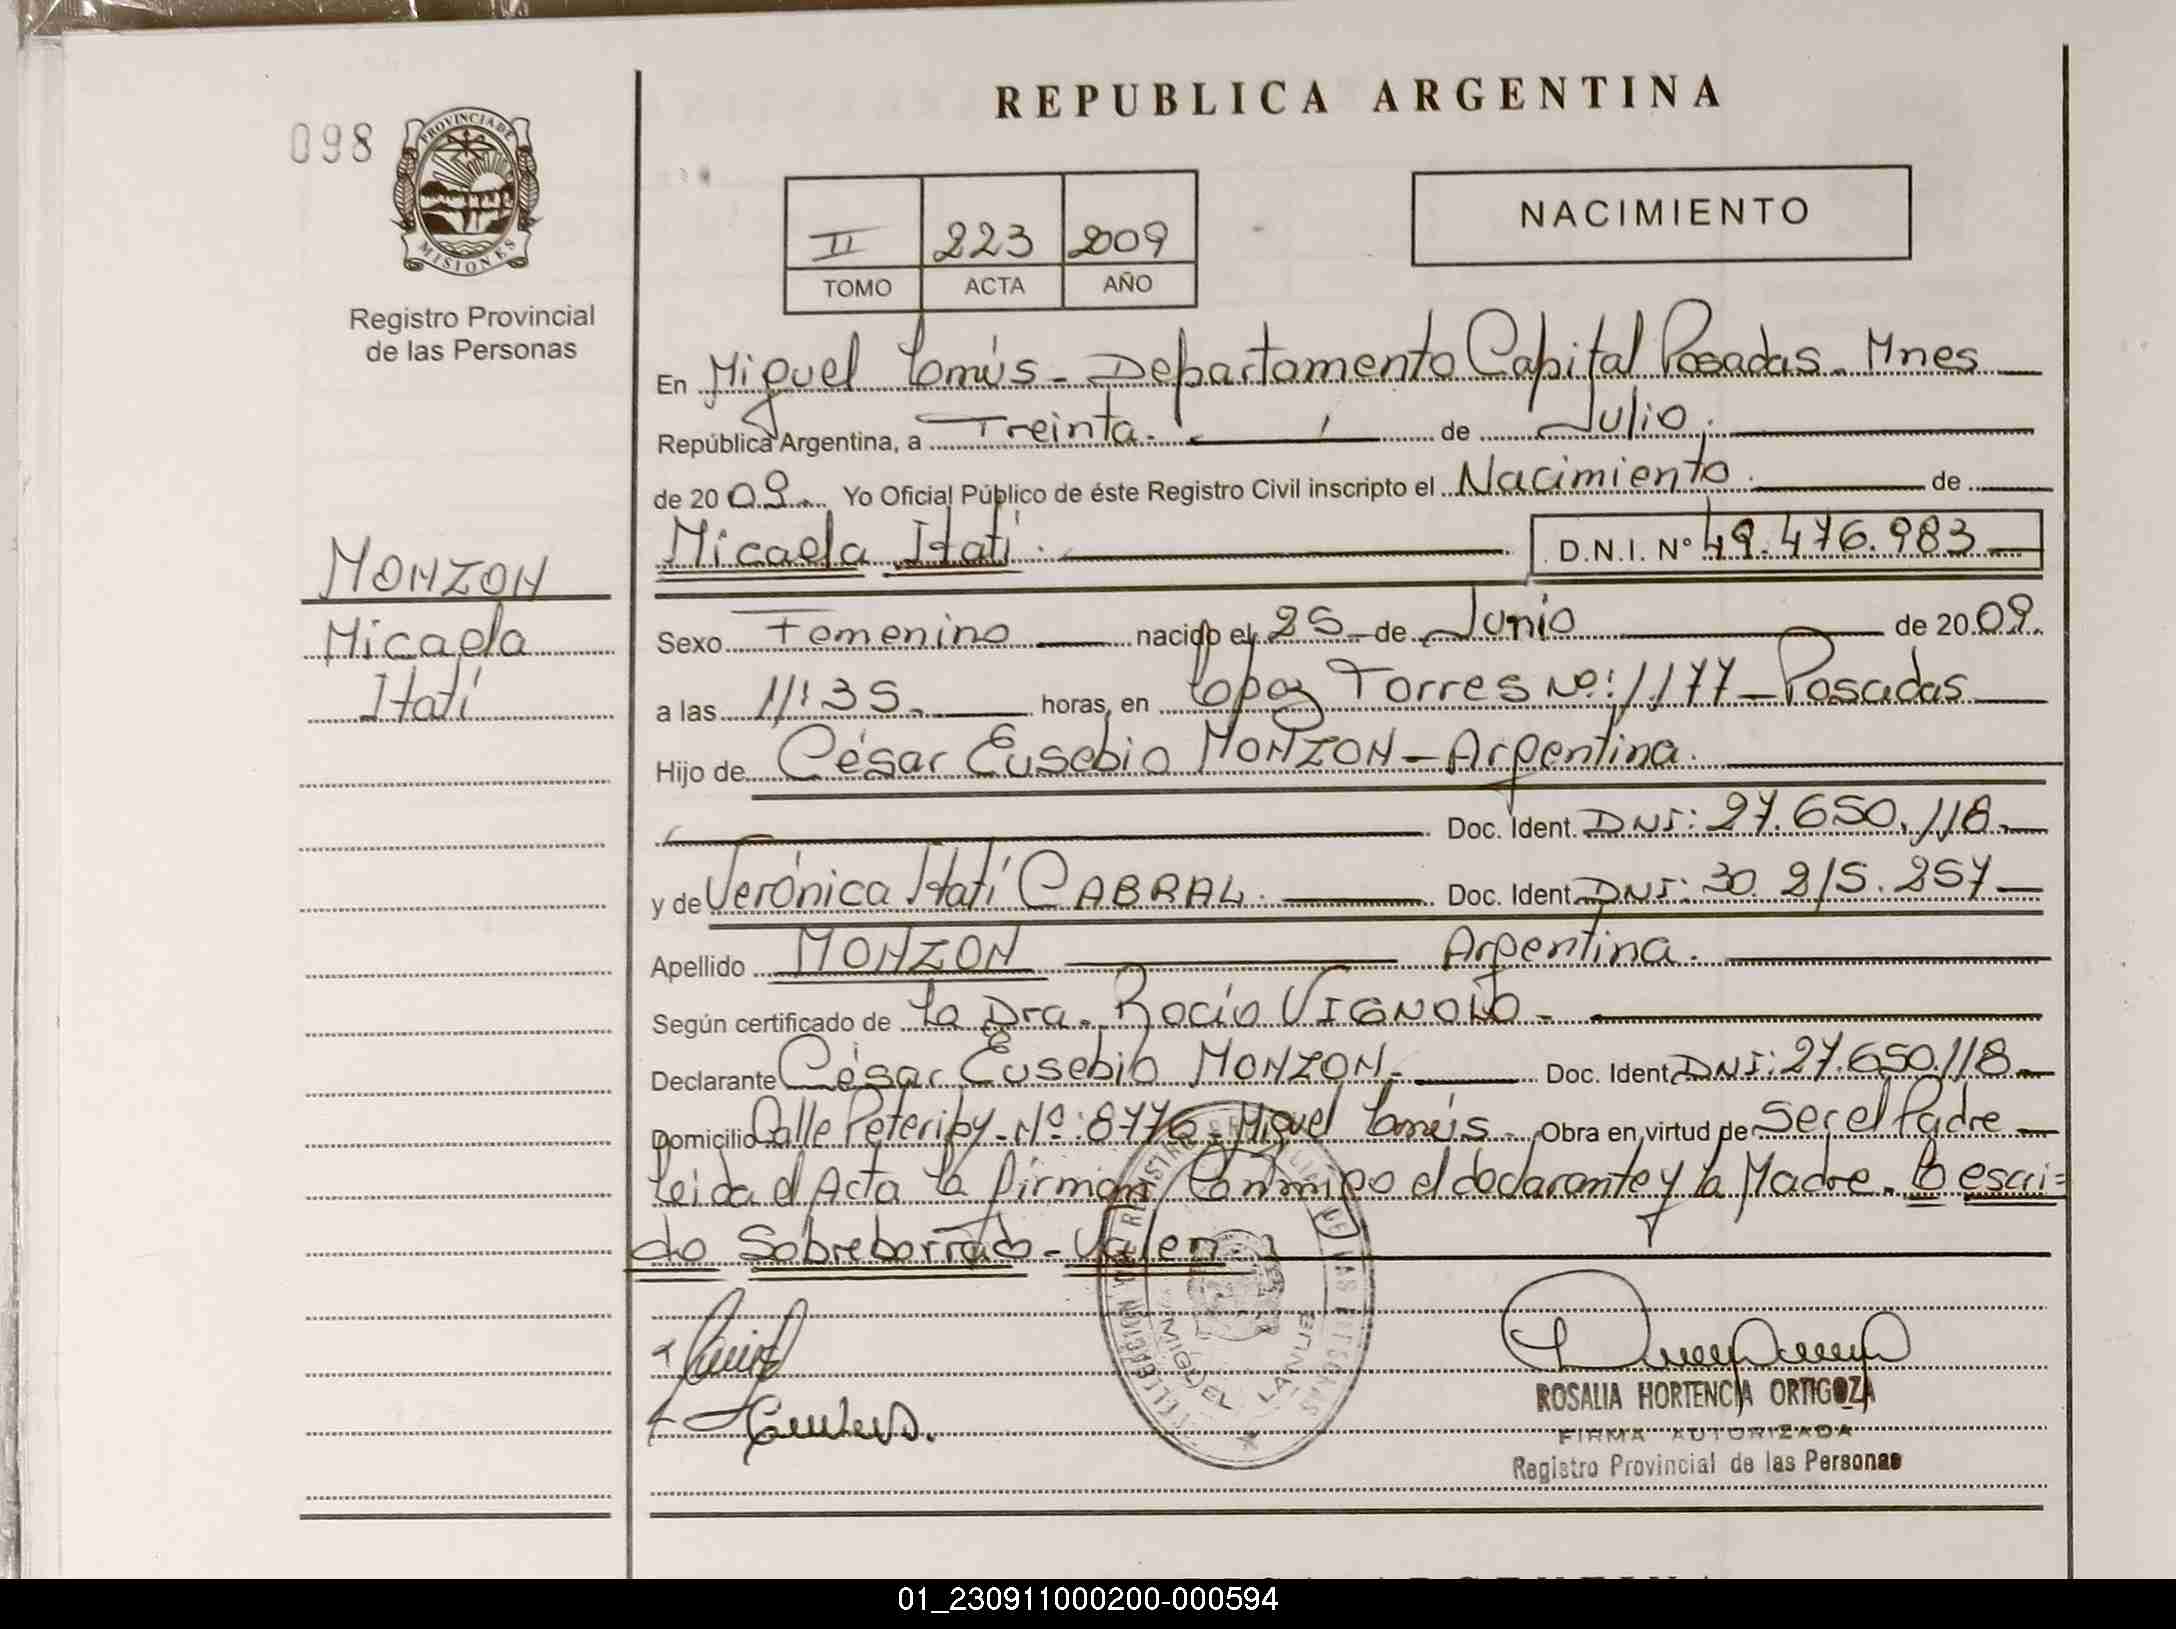 REPUBLICA ARGENTINA
098
PROVINCIA DE
MISIONES
Registro Provincial
de las Personas
II 223 2009
TOMO ACTA AÑO
NACIMIENTO
En Miguel Lanús - Departamento Capital Posadas - Mnes
República Argentina, a Treinta de Julio
de 2009 Yo Oficial Público de éste Registro Civil inscripto el Nacimiento de
Micaela Itatí D.N.I. Nº 49.476.983
MONZON
Micaela
Itatí
Sexo Femenino nacido el 25 de Junio de 2009
a las 11:35 horas, en López Torres Nº: 1177 - Posadas
Hijo de César Eusebio MONZON - Argentina
Doc. Ident. DNI: 27.650.118
y de Verónica Itatí CABRAL Doc. Ident. DNI: 30.215.257
Apellido MONZON Argentina
Según certificado de La Dra. Rocío VIGNOLO
Declarante César Eusebio MONZON Doc. Ident. DNI: 27.650.118
Domicilio Calle Peteriby - Nº: 8776 - Miguel Lanús Obra en virtud de ser el Padre
Leida el Acta la firman Conmigo el declarante y la Madre. Lo escri=
do Sobreborrado - Valen
MIGUEL LANUS
ROSALIA HORTENCIA ORTIGOZA
FIRMA AUTORIZADA
Registro Provincial de las Personas
01_230911000200-000594